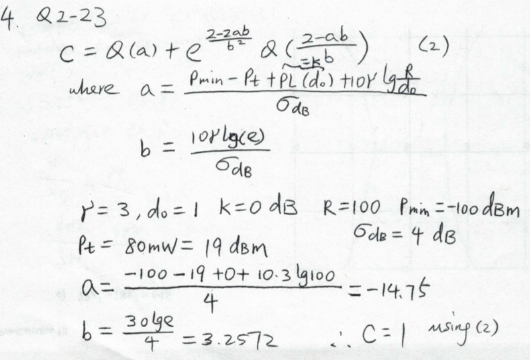 4. Q2-23
C = Q(a) + e^{\frac{2-2ab}{b^2}} Q(\frac{2-ab}{b}) (2)
where a = \frac{Pmin - Pt + PL(d₀) + 10γ lg \frac{R}{d₀}}{σdB}
=k
b = \frac{10γ lg(e)}{σdB}
γ = 3, d₀ = 1 K = 0 dB R = 100 Pmin = -100 dBm
Pt = 80mW = 19 dBm σdB = 4 dB
a = \frac{-100 - 19 + 0 + 10·3 lg100}{4} = -14.75
b = \frac{30 lg e}{4} = 3.2572 ∴ C = 1 using (2)